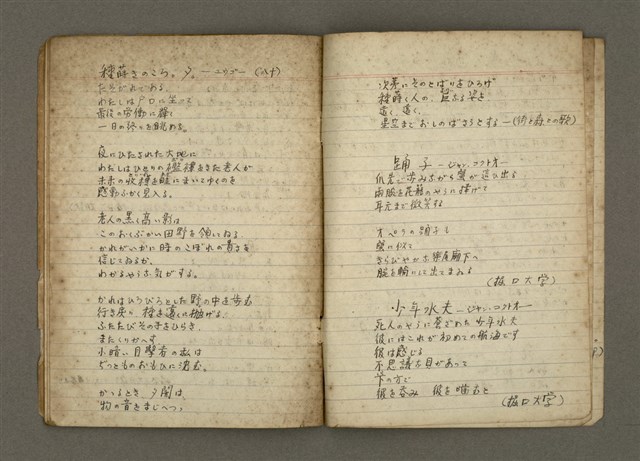 種蒔きのころ。夕。 ―ユウゴー (八十)
たそがれである。
わたしは戸口に坐って
最後の労働に輝く
一日の終りを眺める。
夜にひたされた大地に
わたしはひとりの襤褸をきた老人が
未来の収穫を畦にまいてゆくのを
感動ふかく見入る。
老人の黒く高い影は
このおくぶかい田野を領してゐる
かれがいかに時のこぼれの貴さを
信じてゐるか、
わかるやうな気がする。
かれはひろびろとした野の中を歩む
行き戻り、種を遠くに投げる
ふたたびその手をひらき
またくりかへす
小暗い目撃者の私は
ぢっとものおもひに沈む。
かゝるとき、夕闇は、
物の音をまじへつゝ、
次第にそのとばりをひろげ
種蒔く人の、
遠く、遠く、
星空までおしのばさうとする―(街と森との歌)
踊子 ―ジャン・コクトオー
爪先で歩みながら蟹が這ひ出る
両腕を花籠のやうに捧げて
耳元まで微笑する
オペラの踊子も
蟹に似て
きらびやかな楽屋廊下へ
腕を輪にして出てまゐる
(堀口大学)
少年水夫 ―ジャン・コクトオー
死人のやうに蒼ざめた少年水夫
彼にはこれが初めての航海です
彼は感じる
不思議な貝があって
下の方で
彼を呑み 彼を噛むと
(堀口大学)